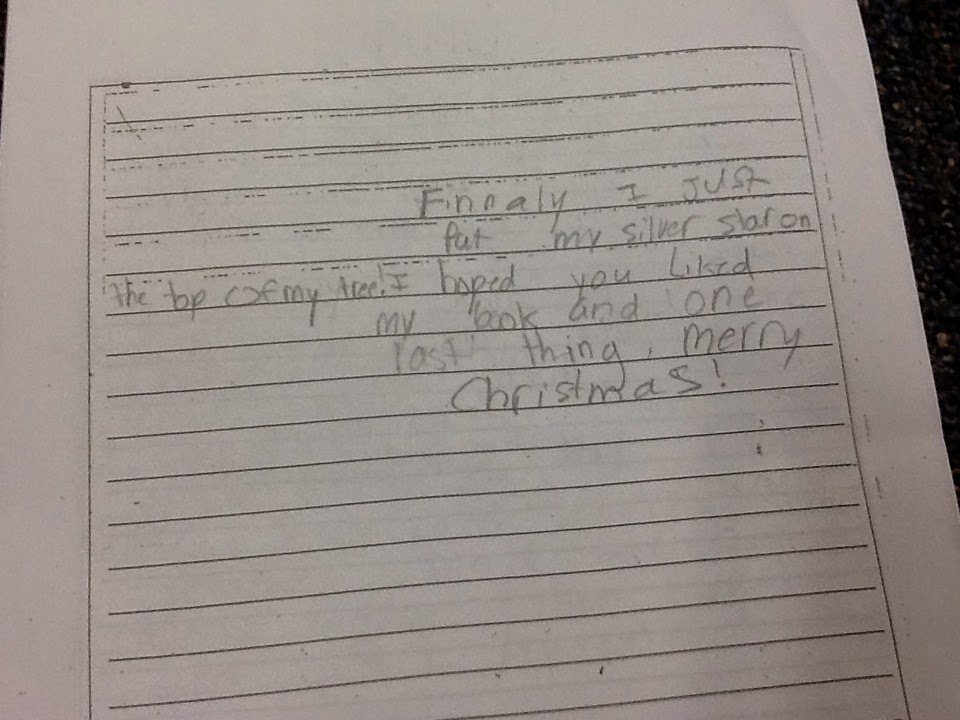 Finnaly I JUSt
put my silver star on
the top of my tree! I hoped you Liked
my book and one
last thing, merry
ChristmaS!